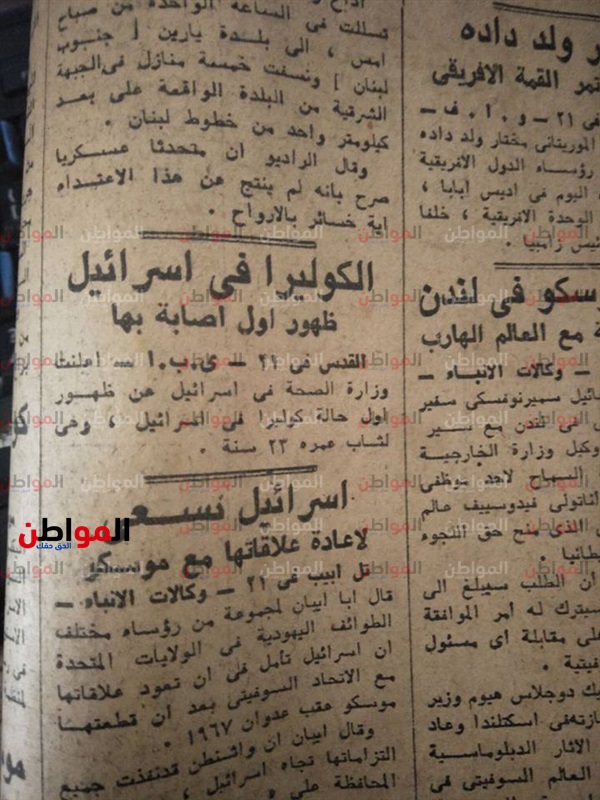 تسللت فى الساعة الواحدة من صباح
امس ، الى بلدة يارين [ جنوب
لبنان ] ونسفت خمسة منازل فى الجبهة
الشرقية من البلدة الواقعة على بعد
كيلومتر واحد من خطوط لبنان .
وقال الراديو ان متحدثا عسكريا
صرح بانه لم ينتج عن هذا الاعتداء
اية خسائر بالارواح .
الكوليرا فى اسرائيل
ظهور اول اصابة بها
القدس فى ٢١ – ى.ب.ا – اعلنت
وزارة الصحة فى اسرائيل عن ظهور
اول حالة كوليرا فى اسرائيل ، وهى
لشاب عمره ٢٣ سنة .
اسرائيل تسعى
لاعادة علاقاتها مع موسكو
تل ابيب فى ٢١ – وكالات الانباء –
قال ابا ايبان لمجموعة من رؤساء مختلف
الطوائف اليهودية فى الولايات المتحدة
ان اسرائيل تأمل فى ان تعود علاقاتها
مع الاتحاد السوفيتى بعد ان قطعتها
موسكو عقب عدوان ١٩٦٧ .
وقال ايبان ان واشنطن قد نفذت جميع
التزاماتها تجاه اسرائيل ،
المحافظة على
ر ولد داده
تمر القمة الافريقى
فى ٢١ – و . ا . ف –
الموريتانى مختار ولد داده
رؤساء الدول الافريقية
اليوم فى اديس ابابا ،
الوحدة الافريقية ، خلفا
ئيس زامبيا .
سكو فى لندن
ة مع العالم الهارب
– وكالات الانباء –
ائيل سميرنوفسكى سفير
فى لندن مع
وكيل وزارة الخارجية
السماح لاحد موظفى
اناتولى فيدوسييف عالم
الذى منح حق اللجوء
يطانيا .
ان الطلب سيبلغ الى
سيترك له امر الموافقة
على مقابلة اى مسئول
فيتية .
يك دوجلاس هيوم وزير
ازته فى اسكتلندا وعاد
الآثار الدبلوماسية
العالم السوفيتى فى
المواطن
الحق حقك